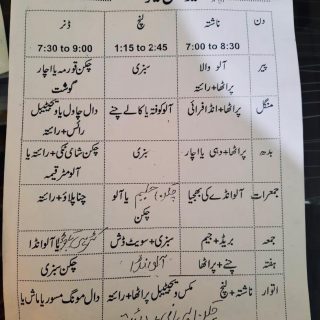 دن ناشتہ لنچ ڈنر
7:00 to 8:30 1:15 to 2:45 7:30 to 9:00
پیر آلو والا پراٹھا+رائتہ سبزی چکن قورمہ یا اچار گوشت
منگل پراٹھا+انڈا فرائی آلو کوفتہ یا کالے چنے دال چاول یا ویجیٹیبل رائس+رائتہ
بدھ پراٹھا+دہی یا اچار سبزی چکن شامی ٹکی+رائتہ یا آلو مٹر قیمہ
جمعرات آلو انڈے کی بھجیا چکن حلیم یا آلو چکن چنا پلاؤ+رائتہ
جمعہ بریڈ+جیم سبزی+سویٹ ڈش یا آلو انڈا
ہفتہ چنے+پراٹھا آلو چکن سبزی
اتوار ناشتہ+لنچ مکس ویجیٹیبل پراٹھا+رائتہ دال مونگ مسور یا ماش یا
چکن